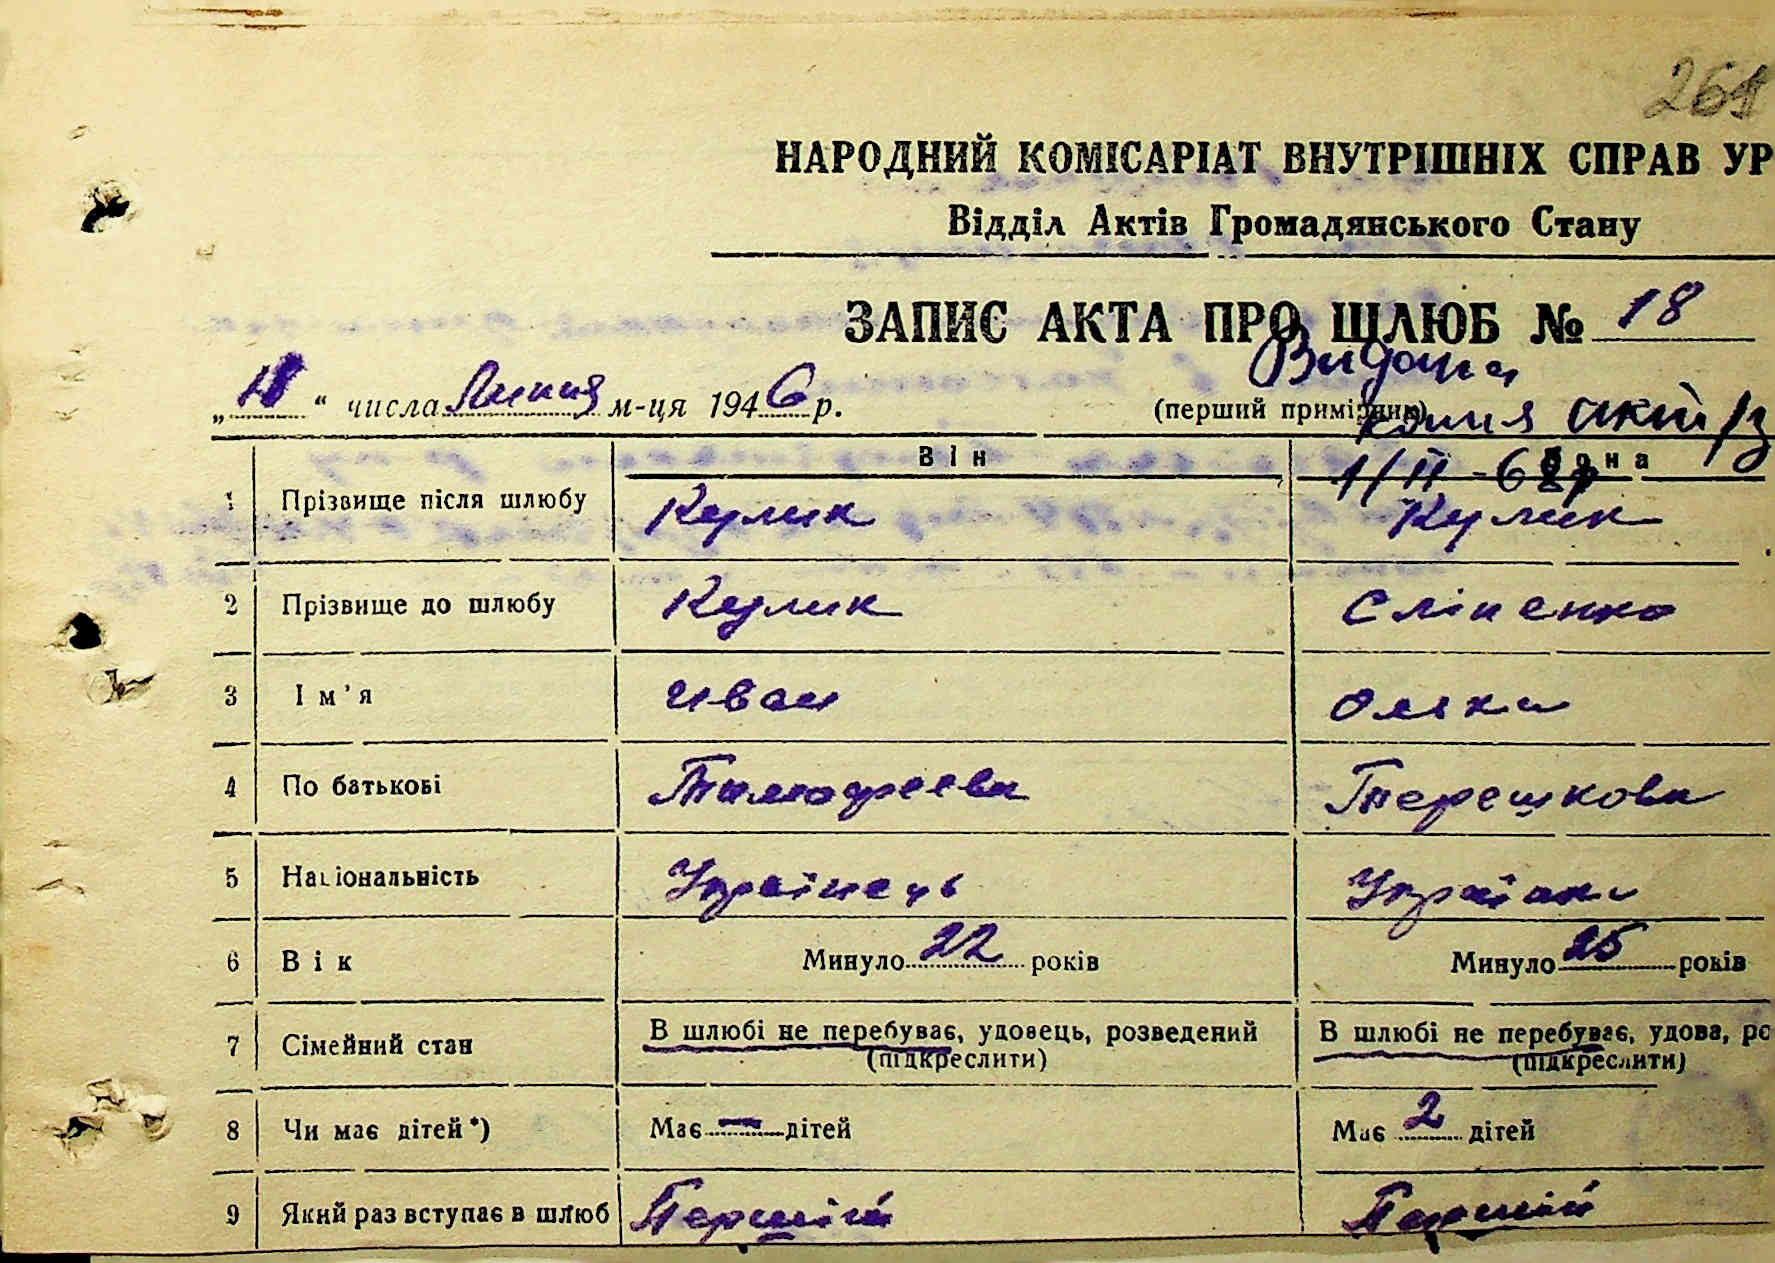 261
НАРОДНИЙ КОМІСАРІАТ ВНУТРІШНІХ СПРАВ УР
Відділ Актів Громадянського Стану
ЗАПИС АКТА ПРО ШЛЮБ № 18
Видана
„18“ числа Липня м-ця 1946 р. (перший примірник)
копия
1/II-62р
Він Вона
1 Прізвище після шлюбу Кулик Кулик
2 Прізвище до шлюбу Кулик Сліпенко
3 Ім'я Иван Ольга
4 По батькові Тимофеевич Терешкова
5 Національність Українець Украінка
6 Вік Минуло 22 років Минуло 25 років
7 Сімейний стан В шлюбі не перебуває, удовець, розведений В шлюбі не перебуває, удова, ро
(підкреслити) (підкреслити)
8 Чи має дітей*) Має — дітей Має 2 дітей
9 Який раз вступає в шлюб Перший Перший